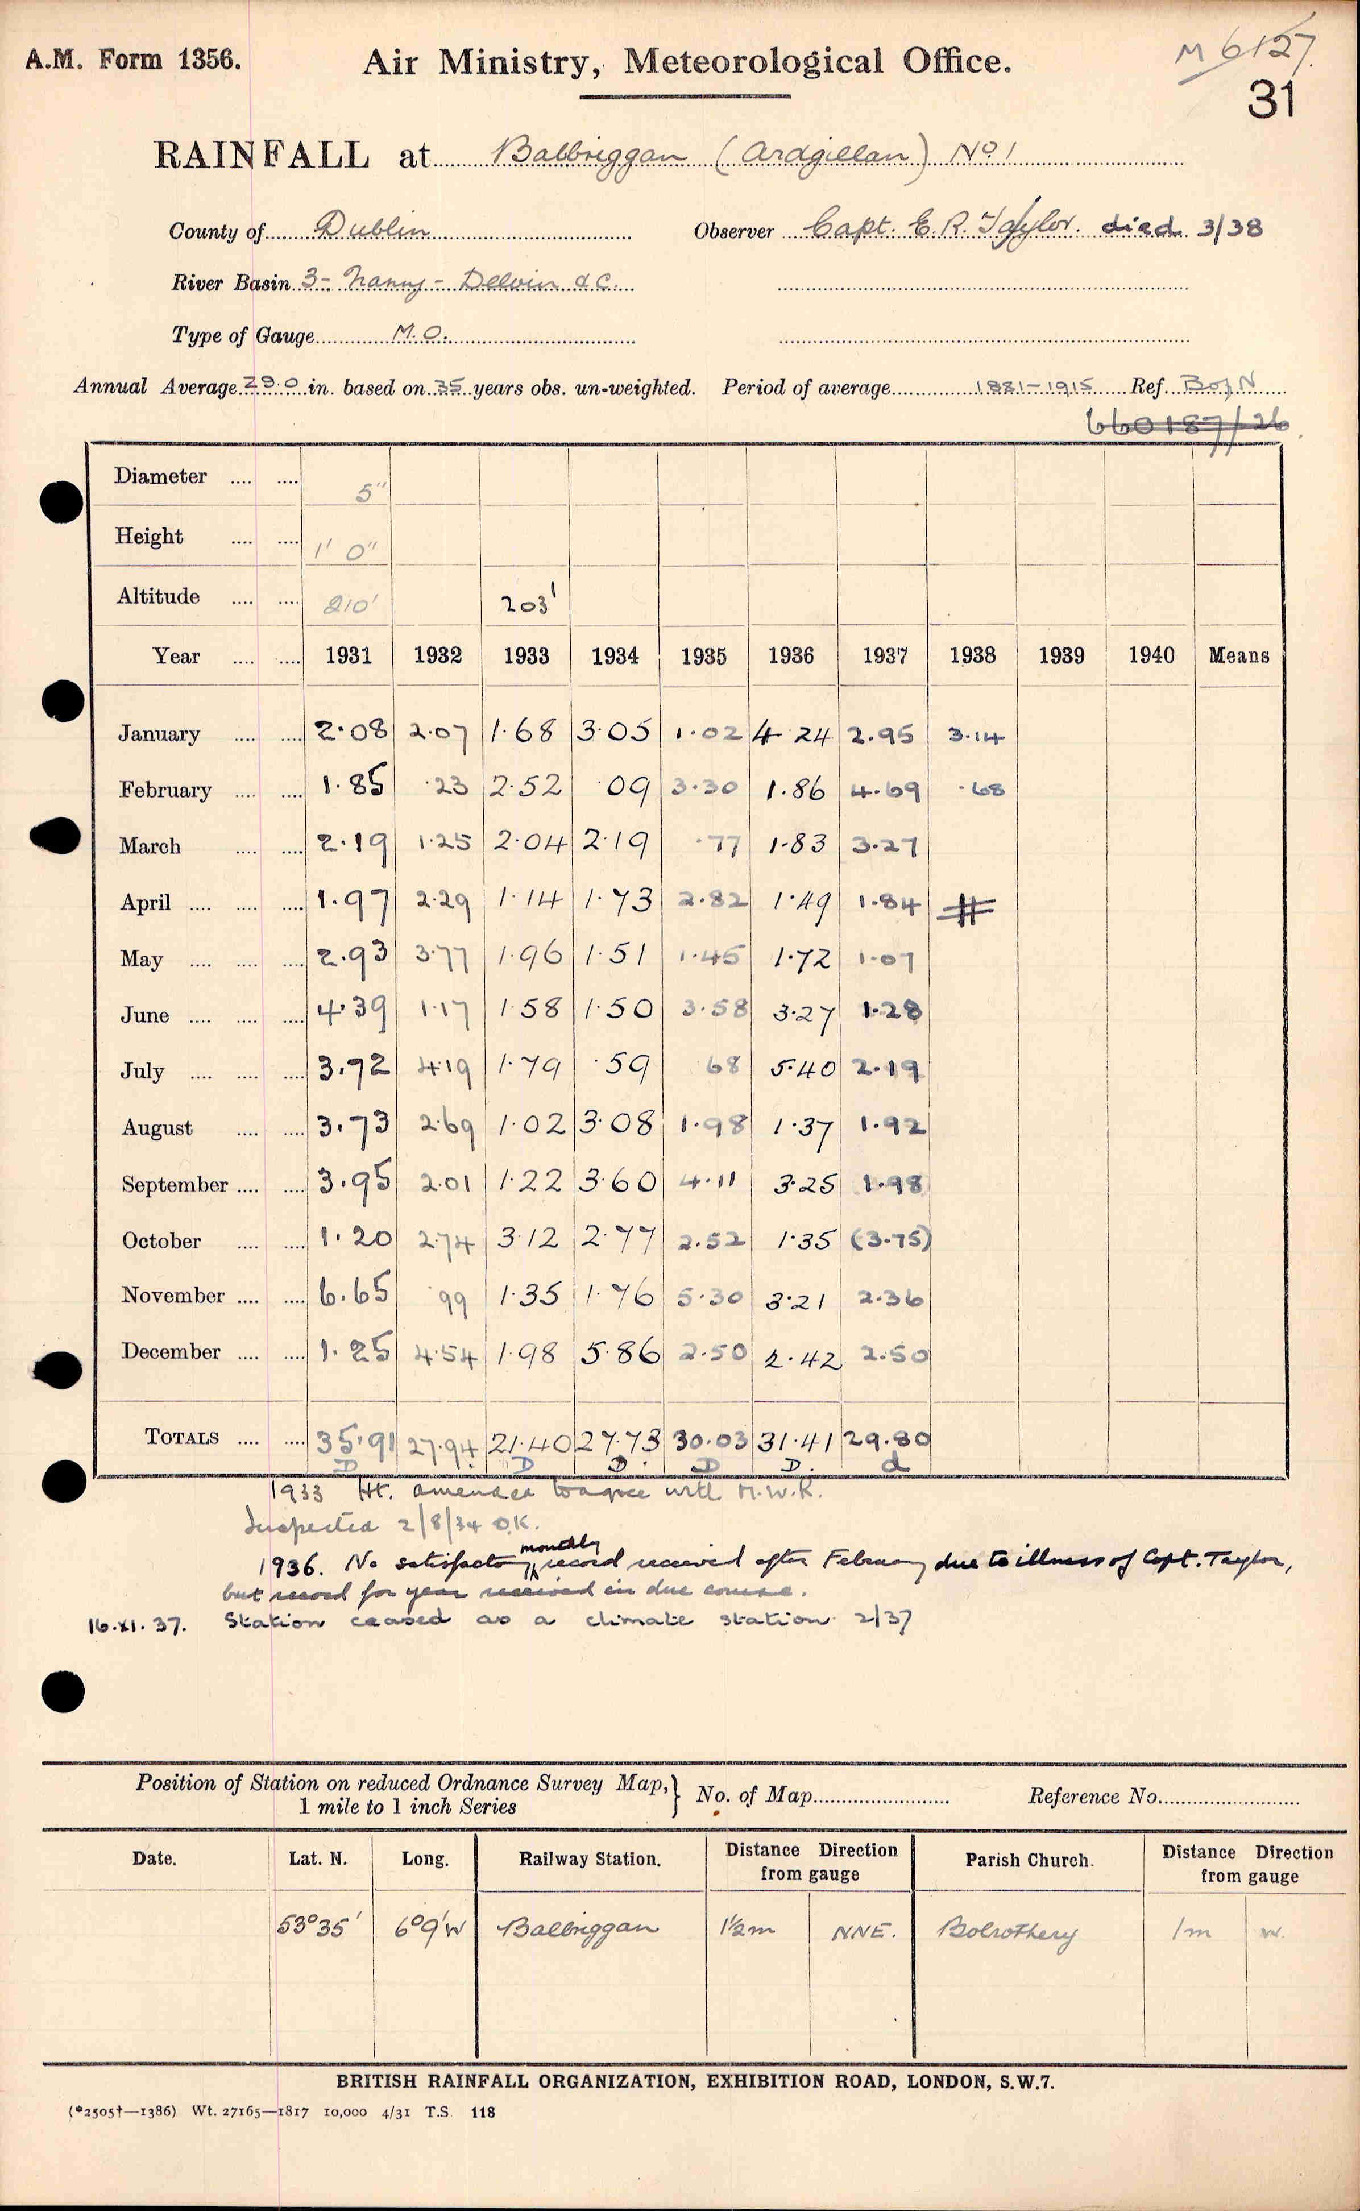 A.M. Form 1356.
Air Ministry, Meteorological Office.
M 6127
31
RAINFALL at Balbriggan (Ardgillan) No 1
County of Dublin Observer Capt. E. R. Taylor. died 3/38
River Basin 3- Nanny - Delvin &c.
Type of Gauge M.O.
Annual Average 29.0 in. based on 35 years obs. un-weighted. Period of average 1881-1915 Ref. B of N
660187/26
Diameter .... .... 5"
Height .... .... 1' 0"
Altitude .... .... 210' 203'
Year .... .... 1931 1932 1933 1934 1935 1936 1937 1938 1939 1940 Means
January .... .... 2.08 2.07 1.68 3.05 1.02 4.24 2.95 3.14
February .... .... 1.85 .23 2.52 .09 3.30 1.86 4.69 .68
March .... .... 2.19 1.25 2.04 2.19 .77 1.83 3.27
April .... .... .... 1.97 2.29 1.14 1.73 2.82 1.49 1.84 #
May .... .... .... 2.93 3.77 1.96 1.51 1.45 1.72 1.07
June .... .... .... 4.39 1.17 1.58 1.50 3.58 3.27 1.28
July .... .... .... 3.72 4.19 1.79 .59 .68 5.40 2.19
August .... .... 3.73 2.69 1.02 3.08 1.98 1.37 1.92
September .... .... 3.95 2.01 1.22 3.60 4.11 3.25 1.98
October .... .... 1.20 2.74 3.12 2.77 2.52 1.35 (3.75)
November .... .... 6.65 .99 1.35 1.76 5.30 3.21 2.36
December .... .... 1.25 4.54 1.98 5.86 2.50 2.42 2.50
TOTALS .... .... 35.91 27.94 21.40 27.73 30.03 31.41 29.80
D D D. D D. d
1933 Ht. amended to agree with M.W.R.
Inspected 2/8/34 O.K.
1936. No satisfactory monthly record received after February due to illness of Capt. Taylor,
but record for year received in due course.
16.XI.37. Station ceased as a climate station 2/37
Position of Station on reduced Ordnance Survey Map, } No. of Map Reference No.
1 mile to 1 inch Series
Date. Lat. N. Long. Railway Station. Distance Direction from gauge Parish Church. Distance Direction from gauge
53°35' 6°9'W Balbriggan 1½m NNE. Bolrothery 1m W.
BRITISH RAINFALL ORGANIZATION, EXHIBITION ROAD, LONDON, S.W.7.
(*2505†—1386) Wt. 27165—1817 10,000 4/31 T.S. 118